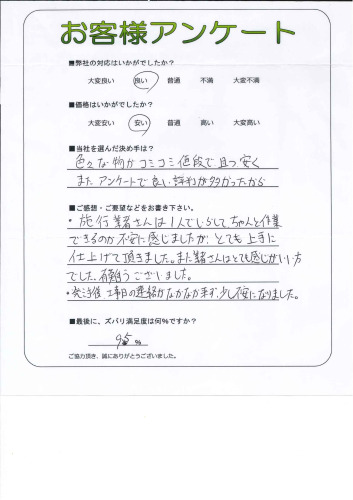 お客様アンケート
■弊社の対応はいかがでしたか?
大変良い 良い 普通 不満 大変不満
■価格はいかがでしたか?
大変安い 安い 普通 高い 大変高い
■当社を選んだ決め手は?
色々な物がコミコミ値段で且つ安く
またアンケートで良い評判が多かったから
■ご感想・ご要望などをお書き下さい。
・施行業者さんは1人でいらしてちゃんと作業
できるのか不安に感じましたが、とても上手に
仕上げて頂きました。また業者さんはとても感じがいい方
でした。有難うございました。
・発注後、工事日の連絡がなかなか来ず少し不安になりました。
■最後に、ズバリ満足度は何%ですか?
95 %
ご協力頂き、誠にありがとうございました。